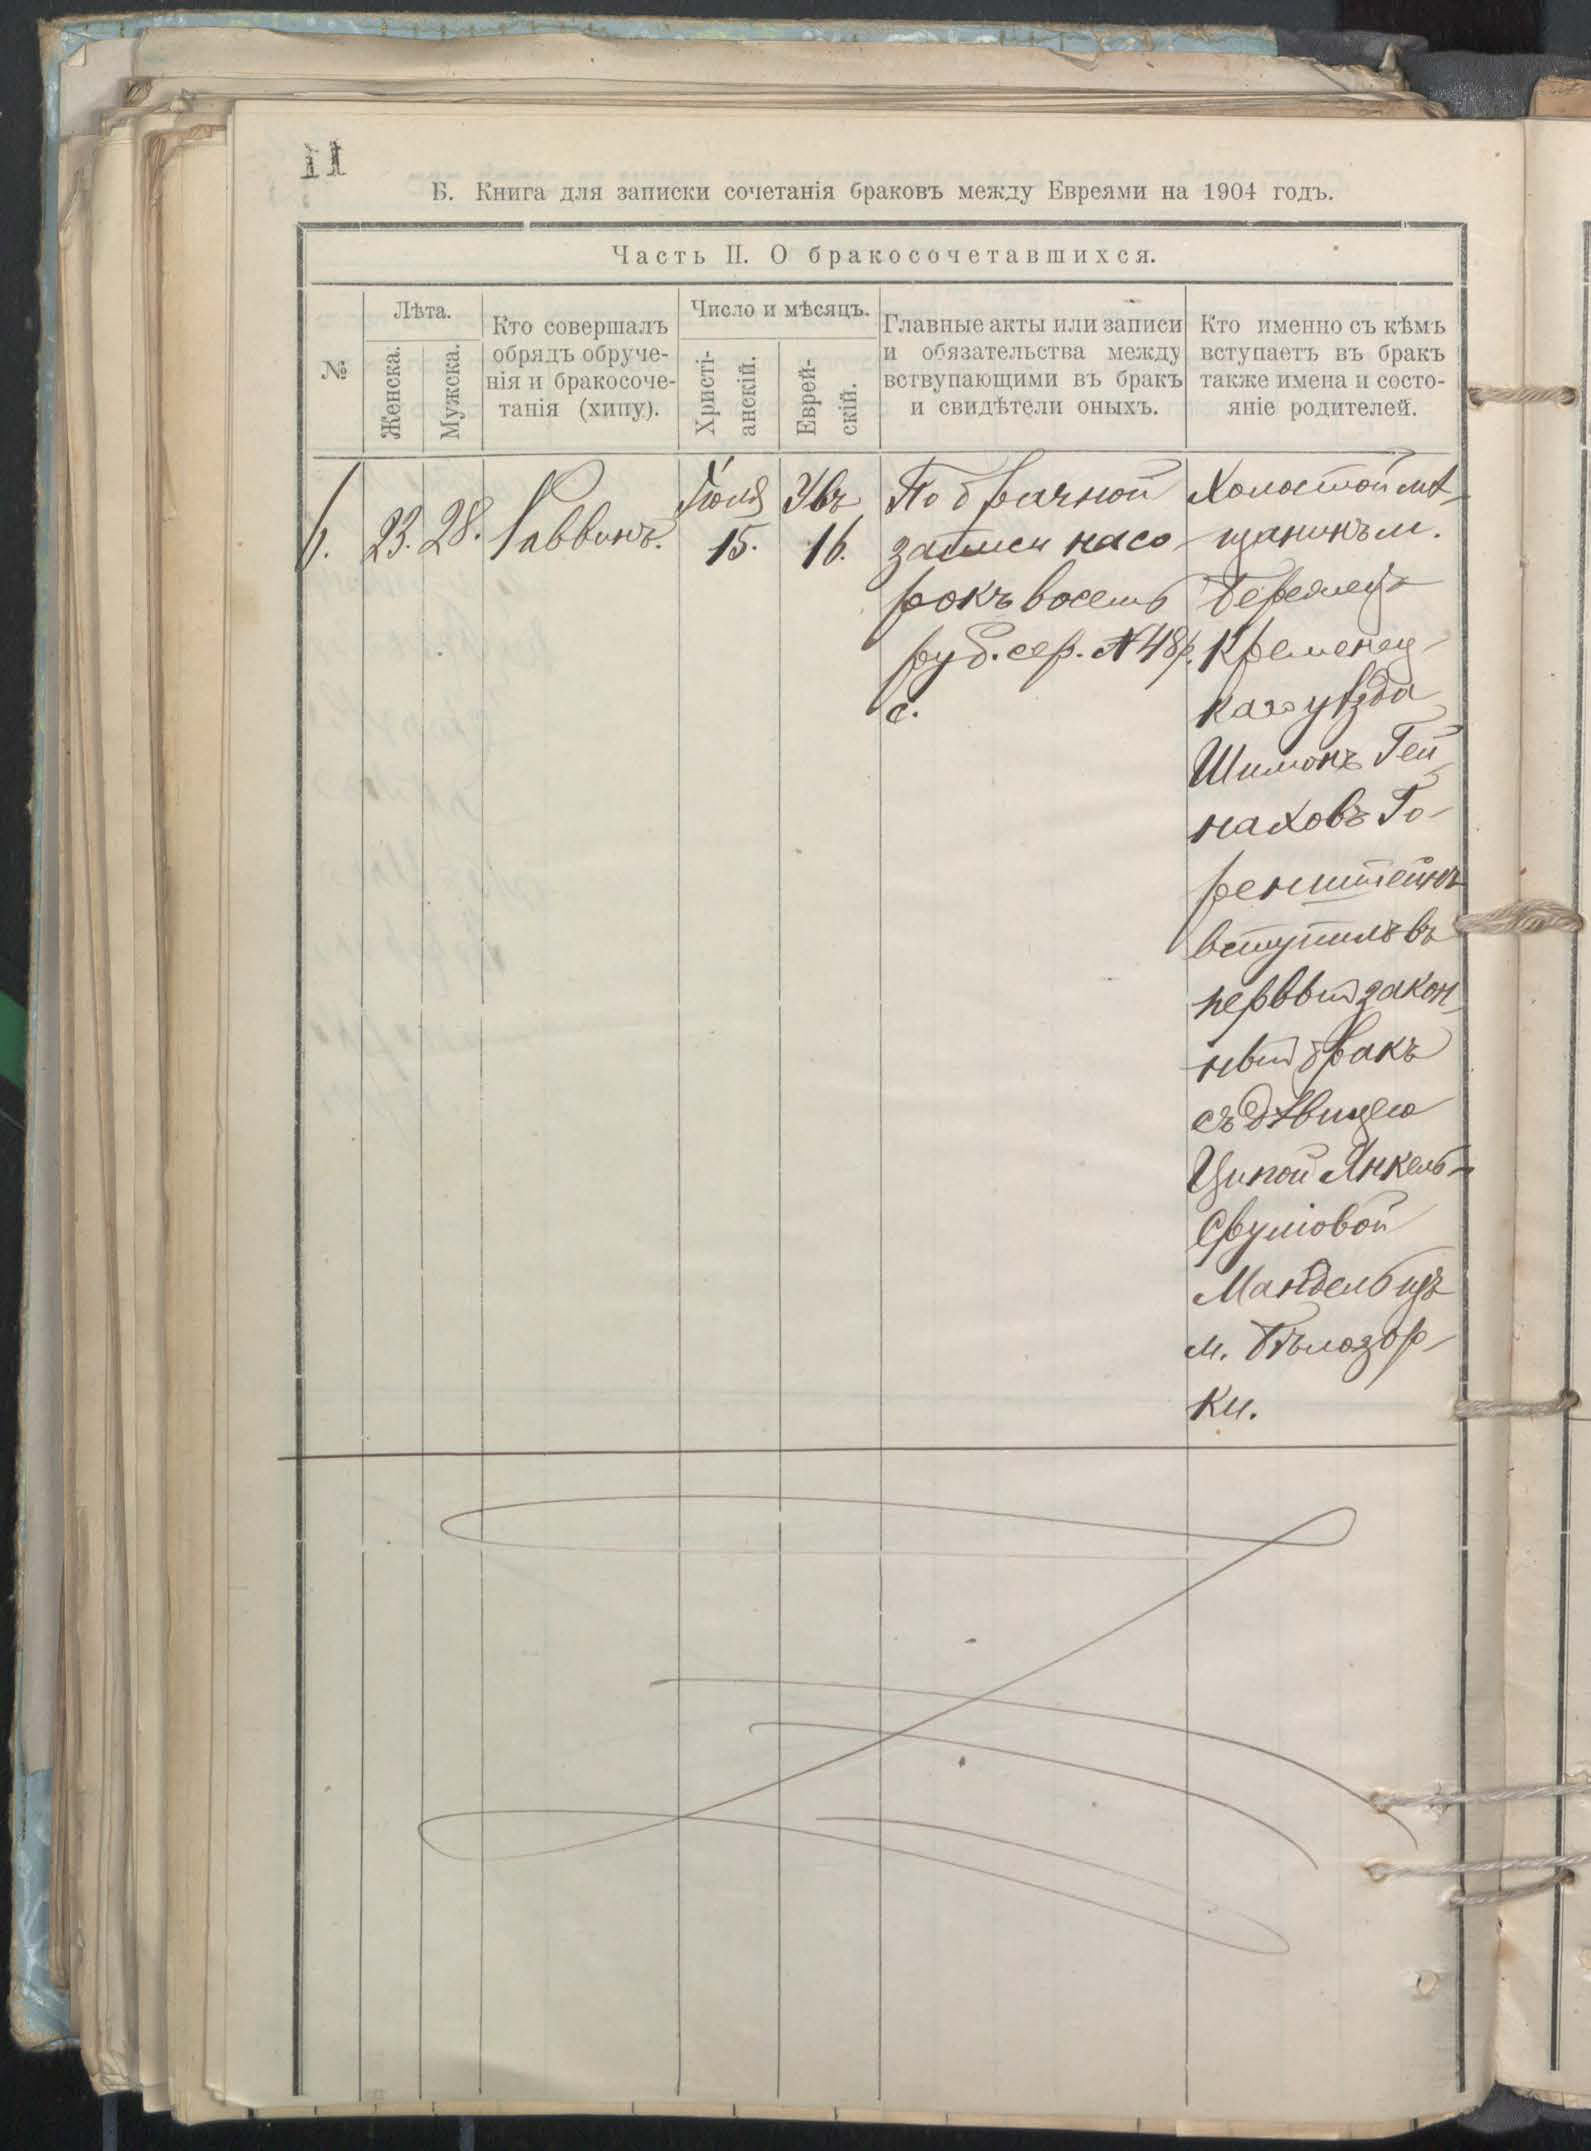 11
Б. Книга для записки сочетанія браковъ между Евреями на 1904 годъ.
Часть II. О бракосочетавшихся.
№
Лѣта.
Женска.
Мужска.
Кто совершалъ
обрядъ обруче-
нія и бракосоче-
танія (хипу).
Число и мѣсяцъ.
Христі-
анскій.
Еврей-
скій.
Главные акты или записи
и обязательства между
вствупающими въ бракъ
и свидѣтели оныхъ.
Кто именно съ кѣмъ
вступаетъ въ бракъ
также имена и состо-
яніе родителей.
6.
23.
28.
Раввинъ.
Іюля
15.
Увъ
16.
По брачной
записи на со
рокъ восемь
руб. сер. № 48 р.
с.
Холостой мѣ-
щанинъ м.
Беремец
Кременец-
каго уѣзда
Шимонъ Гей
наховъ Го-
ренштейнъ
вступилъ въ
первый закон
ный бракъ
съ дѣвицею
Ципой Янкель-
Срулювой
Мандельбцъ
м. Бѣлозор-
ки.